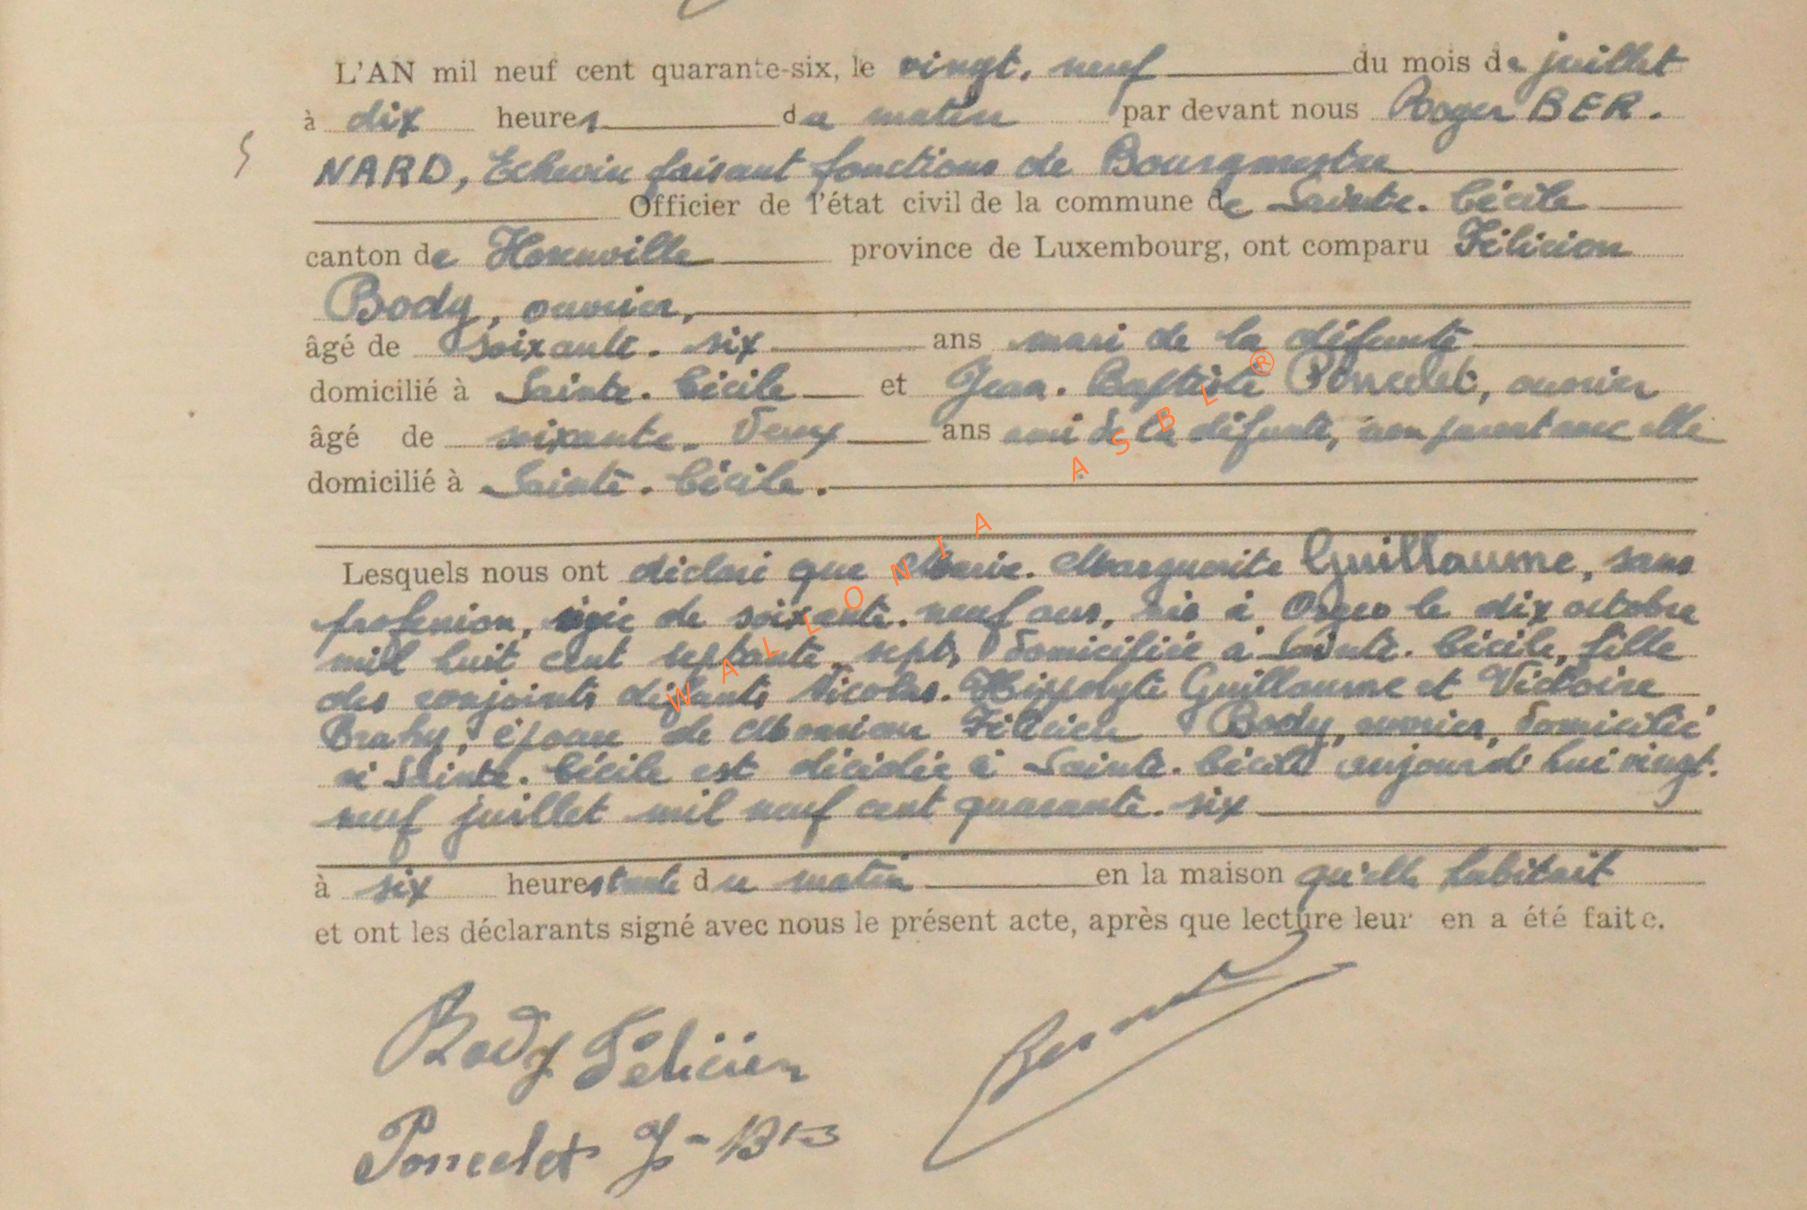 L'AN mil neuf cent quarante-six, le vingt-neuf du mois de juillet
à dix heures du matin par devant nous Roger BER-
NARD, Echevin faisant fonctions de Bourgmestre
Officier de l'état civil de la commune de Sainte-Cécile
canton de Florenville province de Luxembourg, ont comparu Félicien
Body, ouvrier,
âgé de soixante-six ans mari de la défunte
domicilié à Sainte-Cécile et Jean-Baptiste Poncelet, ouvrier
âgé de soixante-deux ans ami de la défunte, non parent avec elle
domicilié à Sainte-Cécile.
Lesquels nous ont déclaré que Marie-Marguerite Guillaume, sans
profession, âgée de soixante-neuf ans, née à Orgeo le dix octobre
mil huit cent septante-sept, domiciliée à Sainte-Cécile, fille
des conjoints défunts Nicolas-Hippolyte Guillaume et Victoire
Brahy, épouse de Monsieur Félicien Body, ouvrier, domicilié
à Sainte-Cécile est décédée à Sainte-Cécile aujourd'hui vingt-
neuf juillet mil neuf cent quarante-six
à six heures trente du matin en la maison qu'elle habitait
et ont les déclarants signé avec nous le présent acte, après que lecture leur en a été faite.
Body Félicien
Poncelet J-Bte
WALLONIA ASBL®